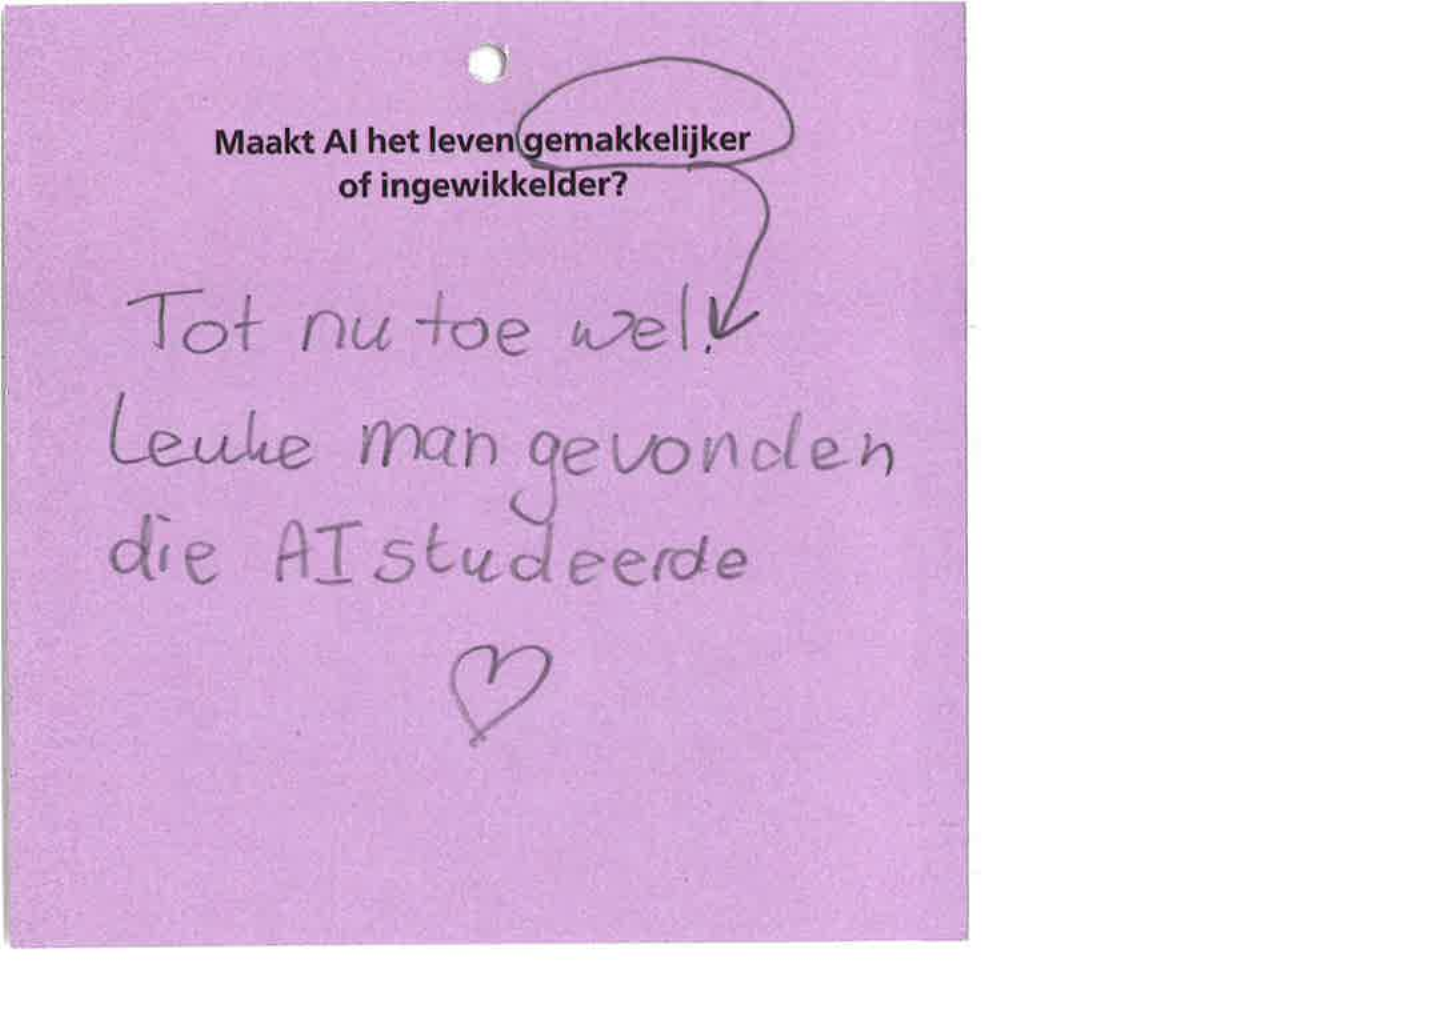 Maakt AI het leven gemakkelijker
of ingewikkelder?
Tot nu toe wel!
Leuke man gevonden
die AI studeerde